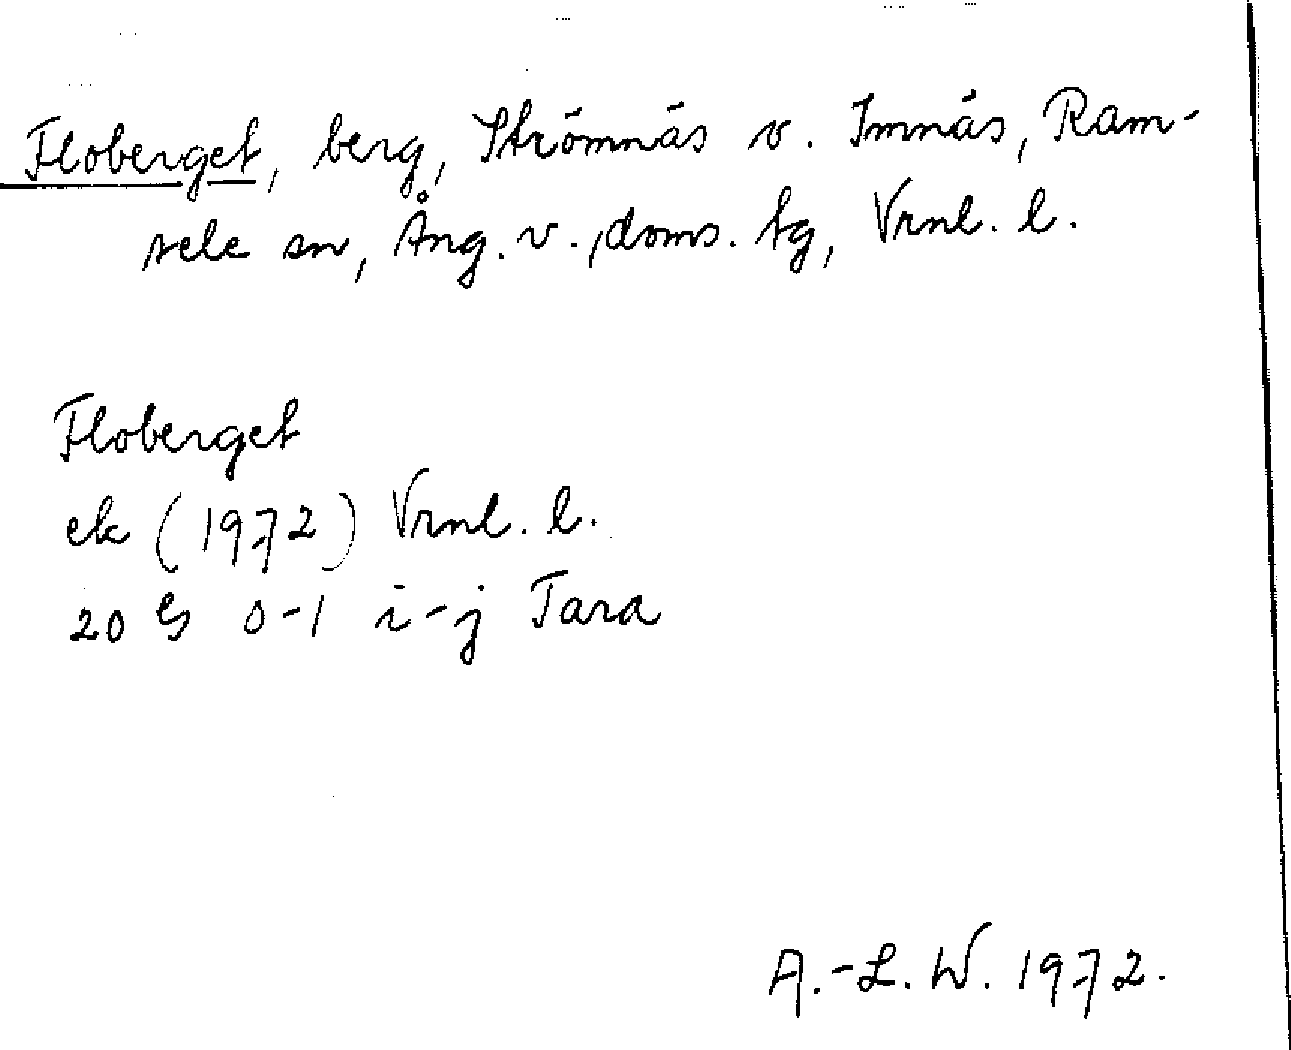 Floberget, berg, Strömnäs v. Imnäs, Ram-
sele sn, Ång. v., doms. tg, Vrnl. l.
Floberget
ek (1972) Vrnl. l.
20 G 0-1 i-j Tara
A.-L. W. 1972.